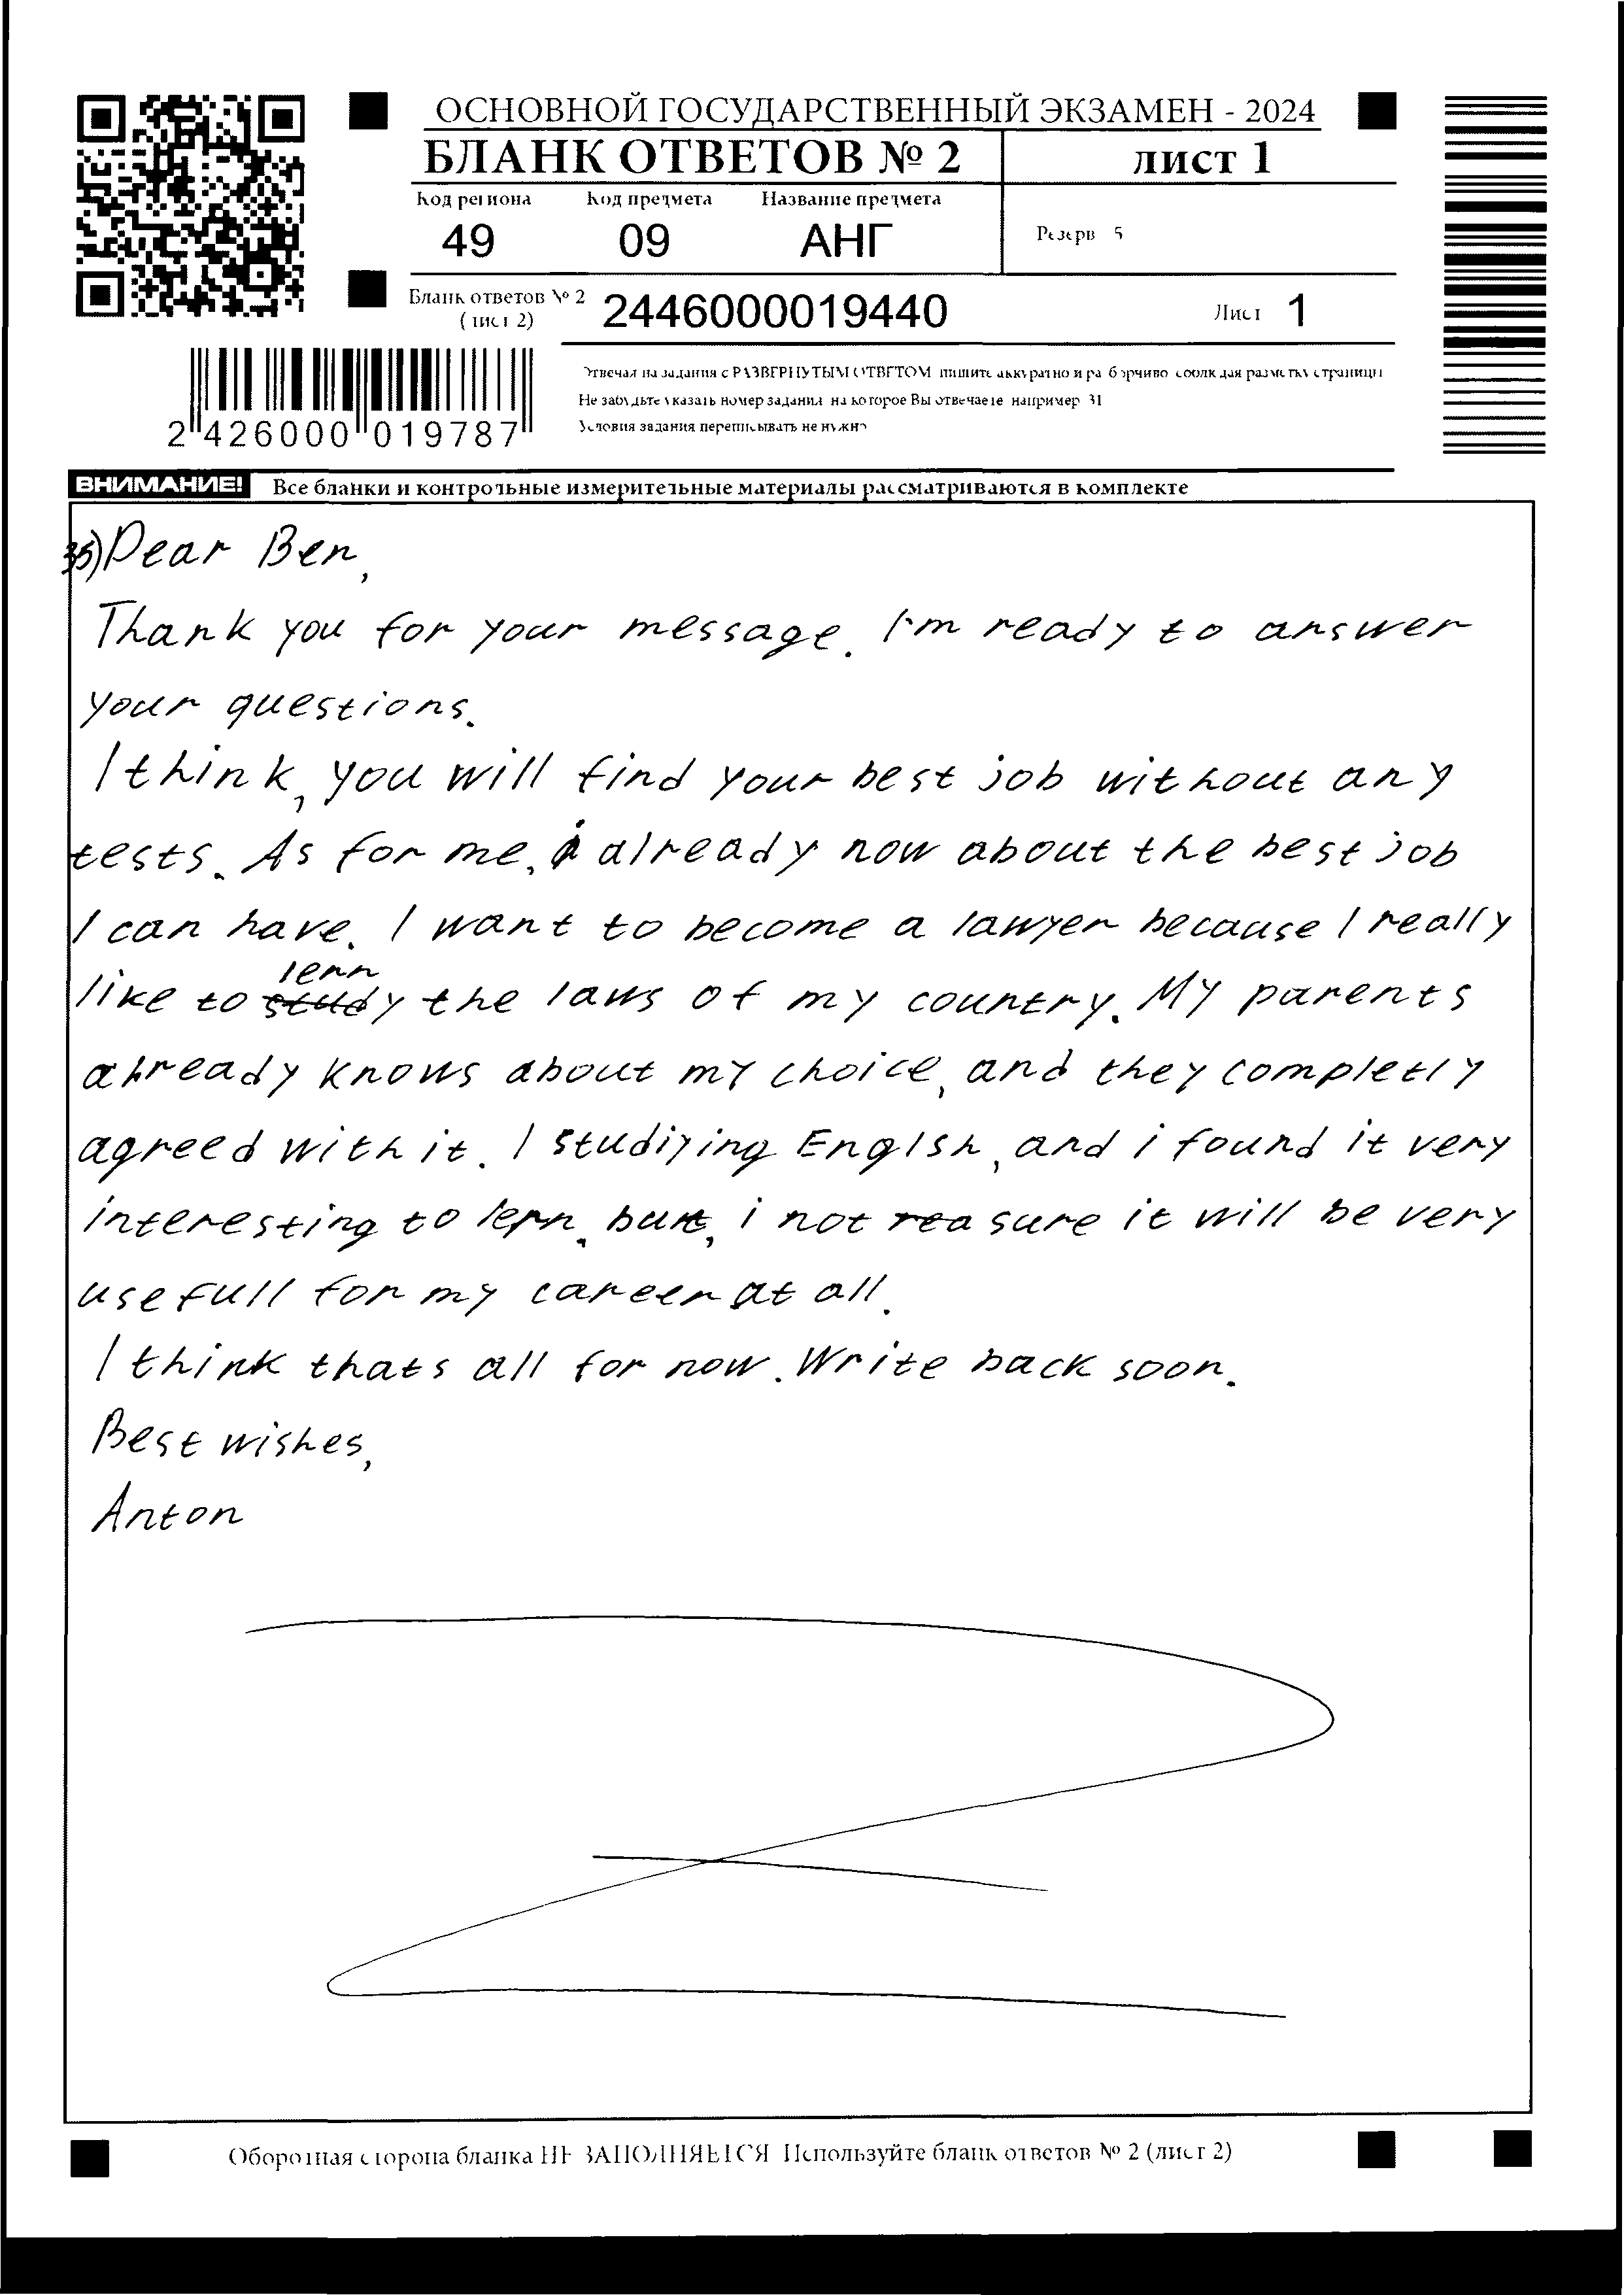 ОСНОВНОЙ ГОСУДАРСТВЕННЫЙ ЭКЗАМЕН - 2024
БЛАНК ОТВЕТОВ № 2
лист 1
Код региона Код предмета Название предмета
49 09 АНГ
Резерв 5
Бланк ответов № 2
(лист 2)
2446000019440
Лист 1
2 426000 019787
Отвечая на задания с РАЗВЕРНУТЫМ ОТВЕТОМ пишите аккуратно и разборчиво соблюдая разметку страницы
Не забудьте указать номер задания на которое Вы отвечаете например 31
Условия задания переписывать не нужно
ВНИМАНИЕ! Все бланки и контрольные измерительные материалы рассматриваются в комплекте
35) Dear Ben,
Thank you for your message. I'm ready to answer
your questions.
I think, you will find your best job without any
tests. As for me, i already now about the best job
I can have. I want to become a lawyer because I really
lern
like to study the laws of my country. My parents
already knows about my choice, and they completly
agreed with it. I studijing Englsh, and i found it very
interesting to lern, but, i not rea sure it will be very
usefull for my career at all.
I think thats all for now. Write back soon.
Best wishes,
Anton
Оборотная сторона бланка НЕ ЗАПОЛНЯЕТСЯ Используйте бланк ответов № 2 (лист 2)